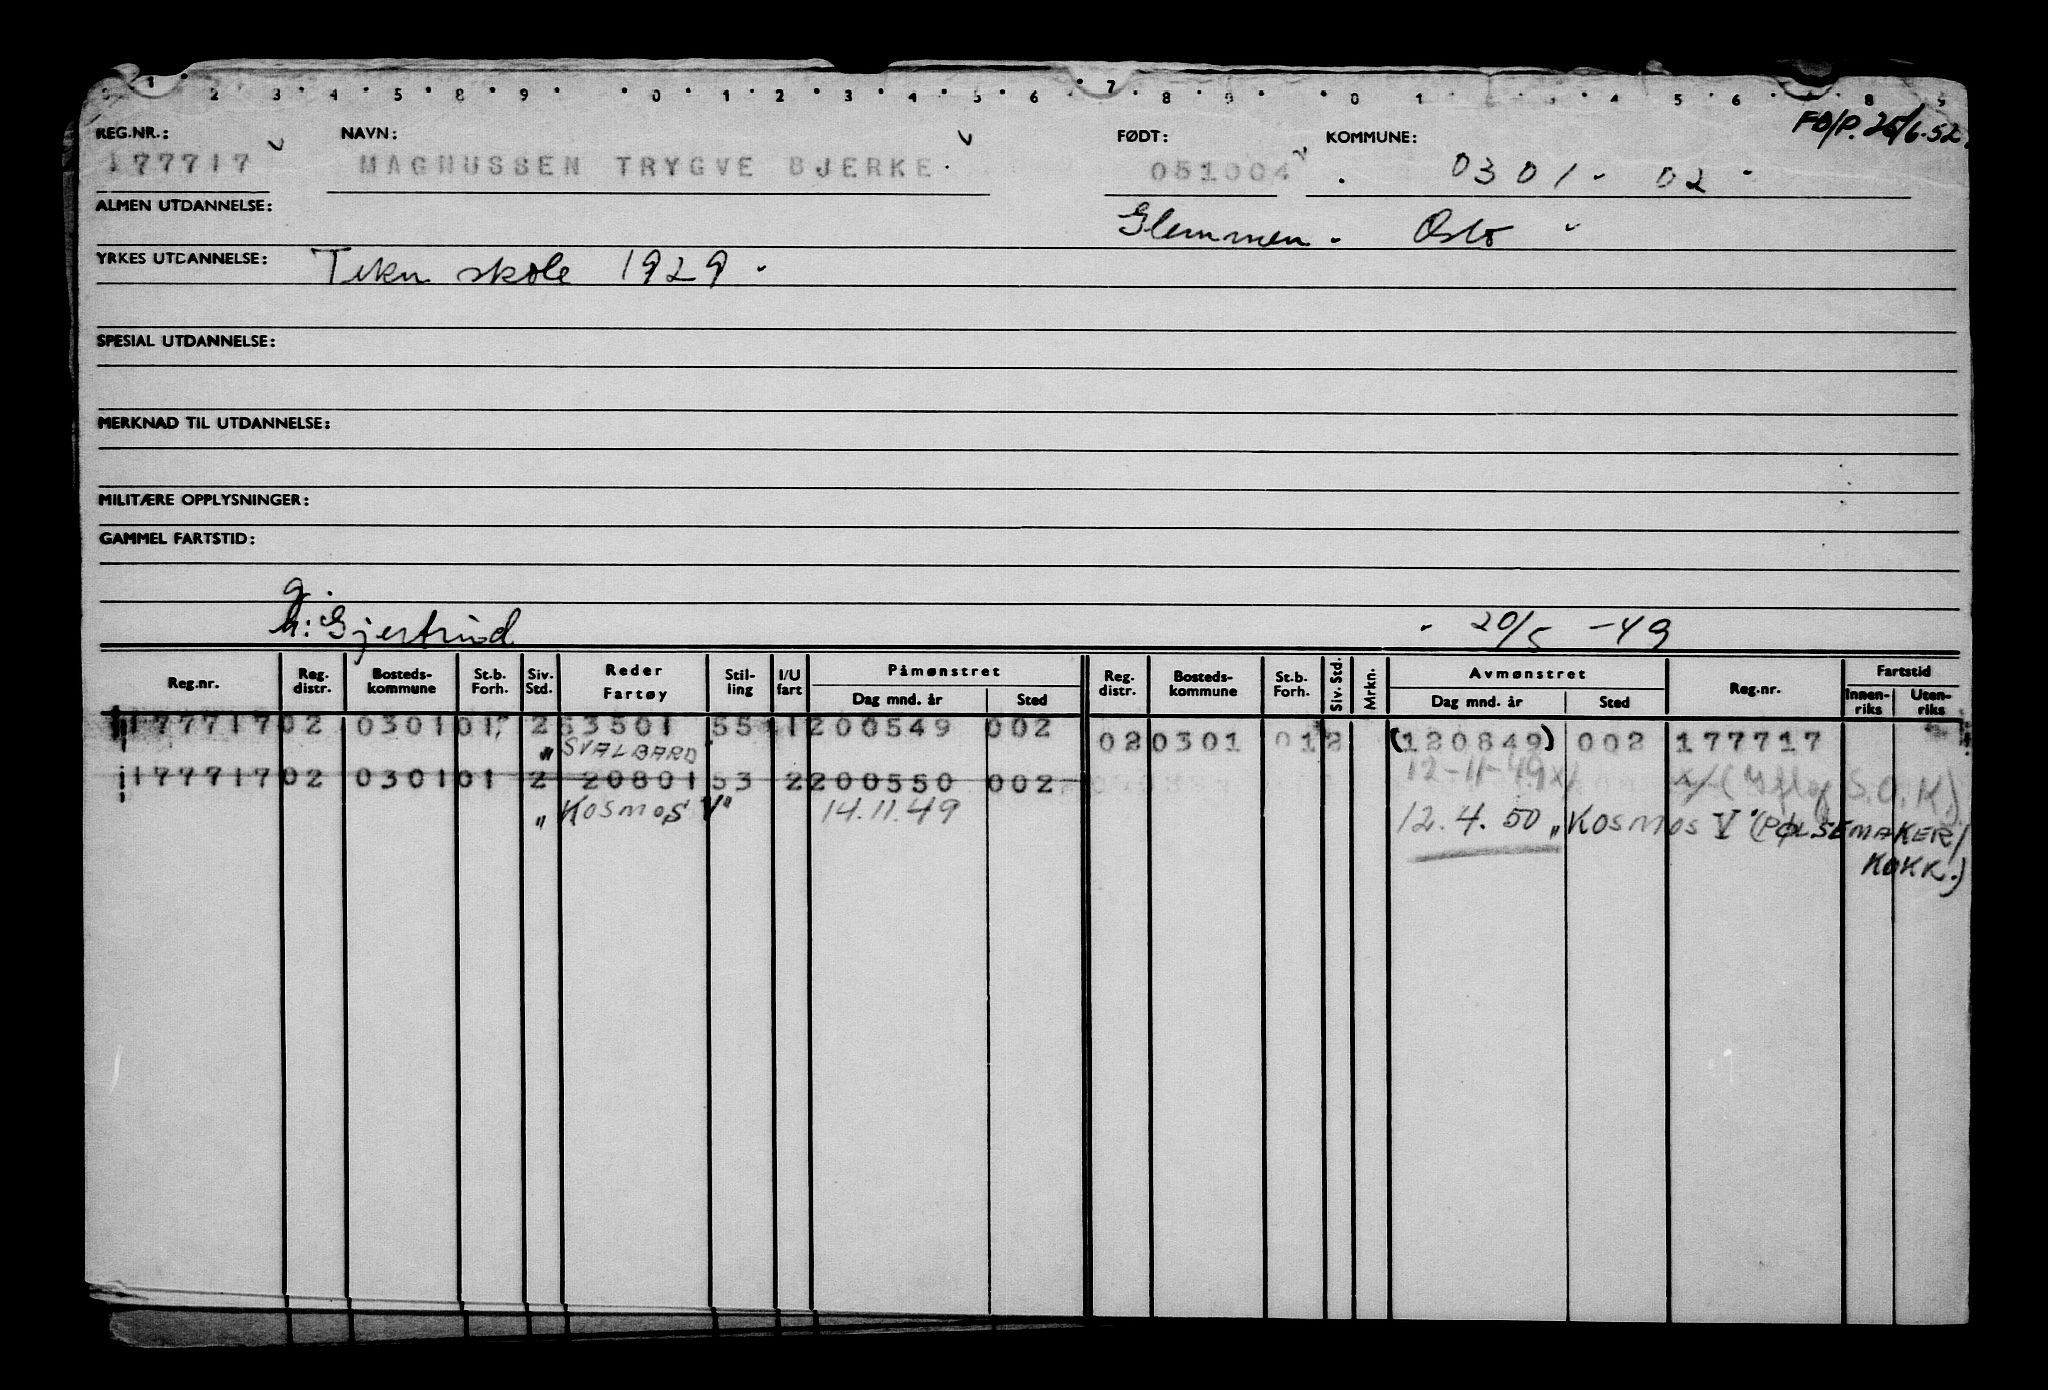 1 2 3 4 5 8 9 0 1 2 3 4 5 6 7 8 9 0 1 4 5 6 8 9
REG.NR.: NAVN: FØDT: KOMMUNE: FB/P. 25/6-52.
177717 MAGNUSSEN TRYGVE BJERKE 051004 0301 - 02
ALMEN UTDANNELSE: Glemmen. Oslo
YRKES UTDANNELSE: Tekn skole 1929
SPESIAL UTDANNELSE:
MERKNAD TIL UTDANNELSE:
MILITÆRE OPPLYSNINGER:
GAMMEL FARTSTID:
g.
h: Gjertrud - 20/5 -49
Reg.nr. Reg. distr. Bosteds-kommune St.b. Forh. Siv. Std. Reder Fartøy Stil-ling I/U fart Påmønstret Dag mnd. år Sted Reg. distr. Bosteds-kommune St.b. Forh. Siv. Std. Mrkn. Avmønstret Dag mnd. år Sted Reg.nr. Fartstid Innen-riks Uten-riks
177717 02 0301 01 2 63501 55 1 200549 002
"SVALBARD" 02 0301 01 2 (120849) 002 177717
177717 02 0301 01 2 20801 53 2 200550 002 12-11-49 x/ x/ (Iflg S.O.K)
"KOSMOS V" 14.11.49 12.4.50 "KOSMOS V" (PØLSEMAKER/
KOKK.)